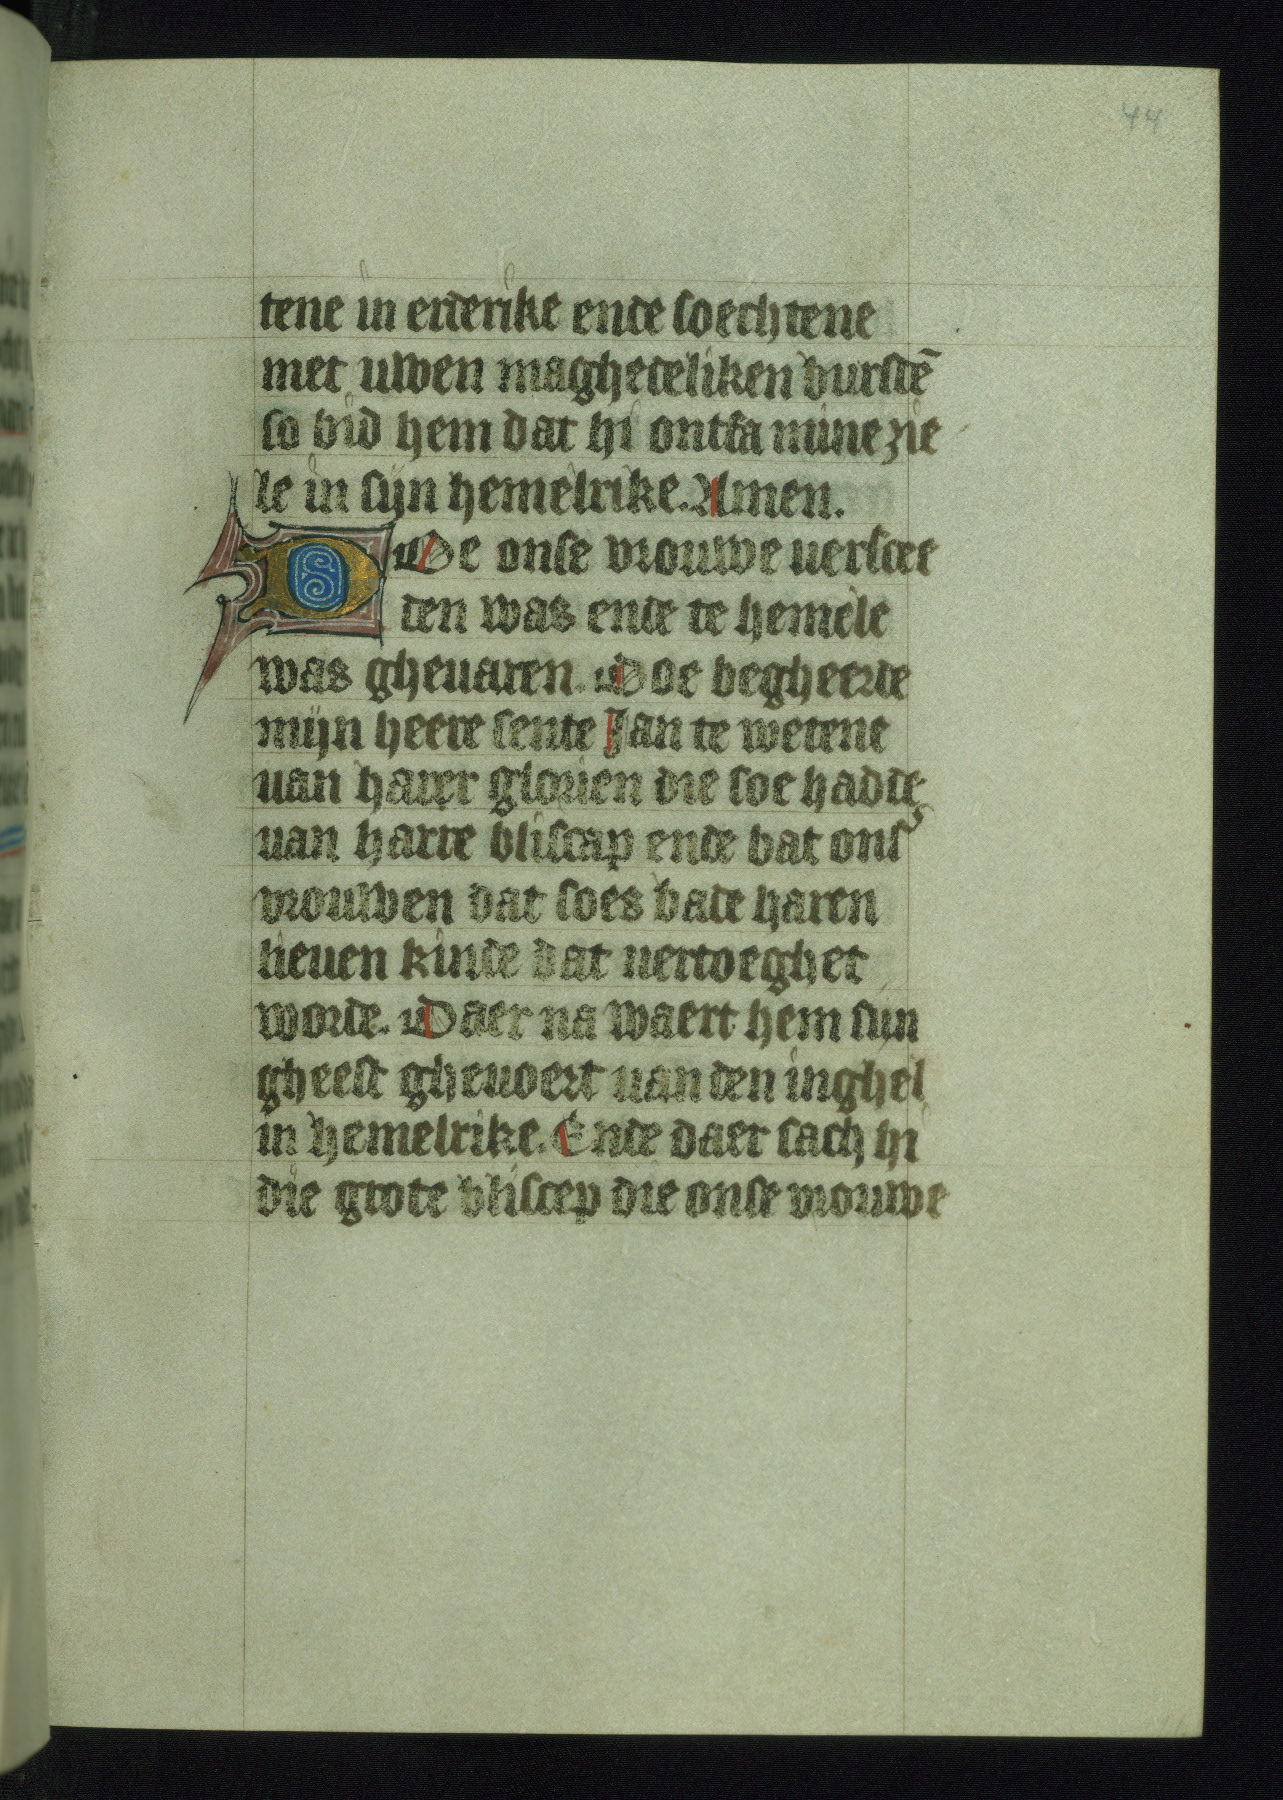 44
tene in erderike ende soechtene
met uwen maghedeliken burstē
so bid hem dat hi ontfa mine zie
le in sijn hemelrike. Amen.
DOe onse vrouwe uersceet
den was ende te hemele
was gheuaren. Doe begheerde
mijn heere sente Jan te wetene
uan harer glorien die soe hadde
uan harre bliscap ende bat ons
vrouwen dat soes bade haren
lieuen kinde dat uertoeghet
worde. Daer na waert hem sijn
gheest gheuoert uan den inghel
in hemelrike. Ende daer sach hi
die grote bliscep die onse vrouwe